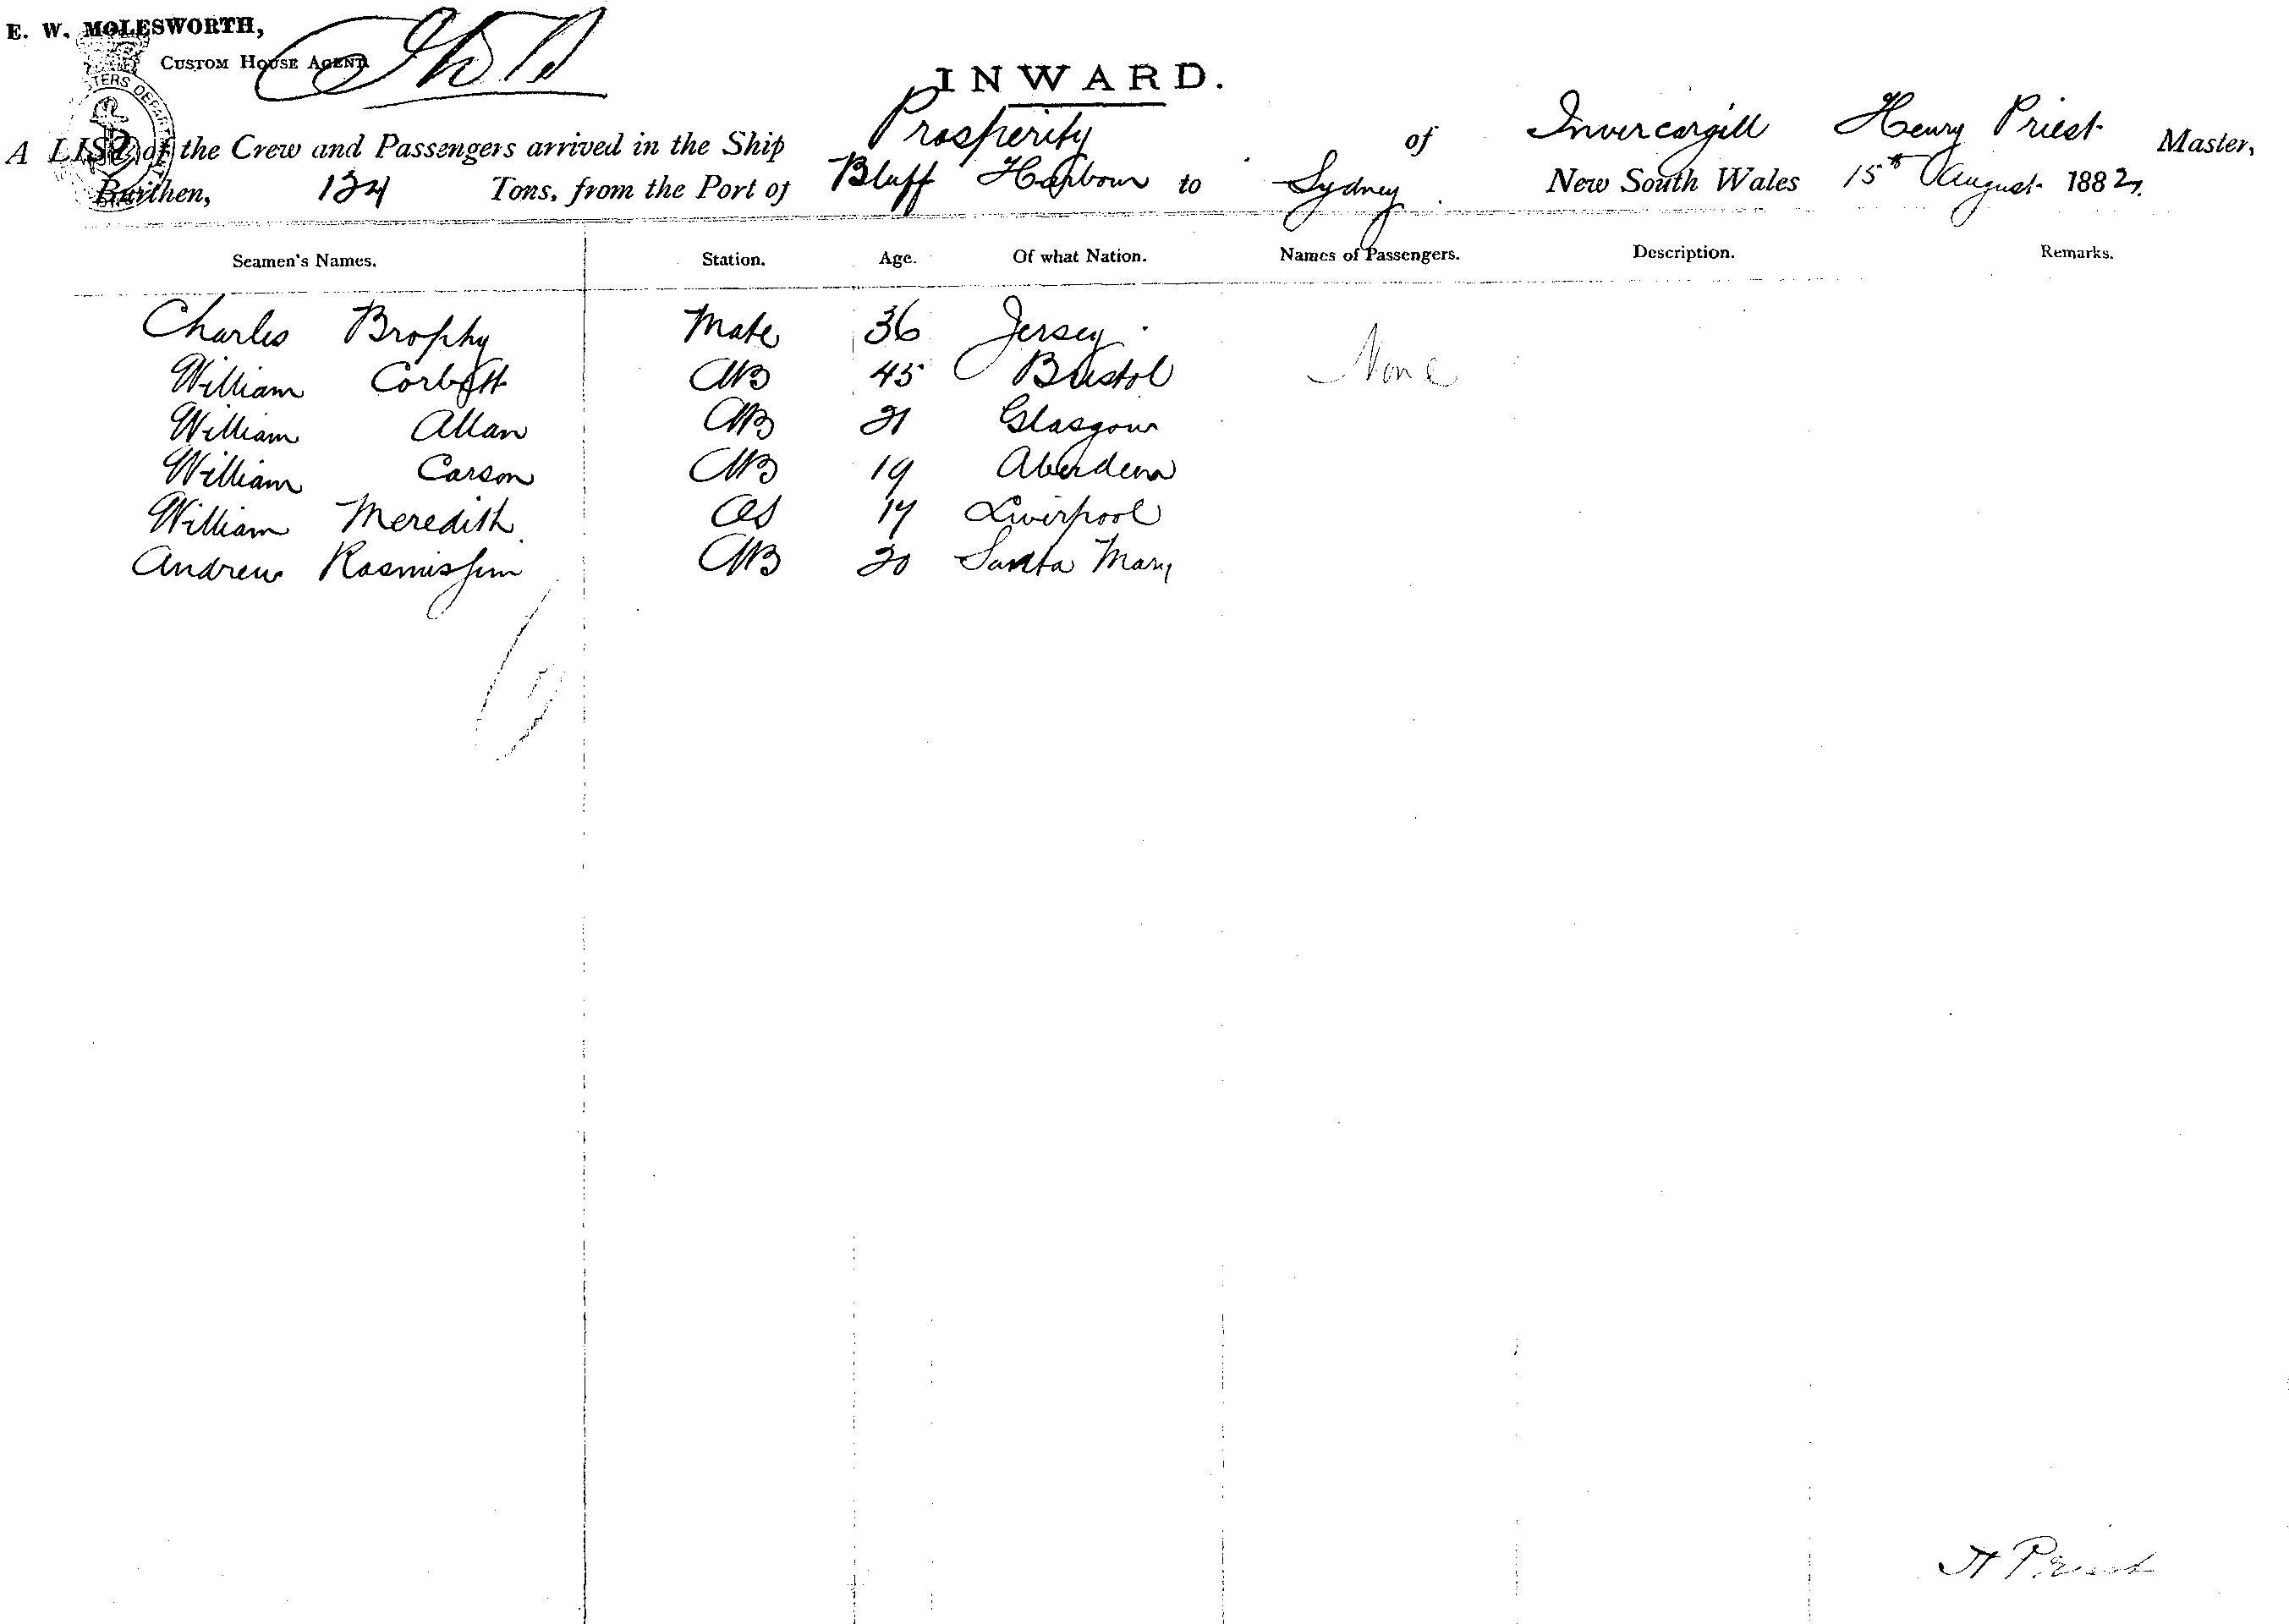 E. W. MOLESWORTH,
CUSTOM HOUSE AGENT
INWARD.
A LIST of the Crew and Passengers arrived in the Ship Prosperity of Invercargill Henry Priest Master,
Burthen, 124 Tons, from the Port of Bluff Harbour to Sydney New South Wales 15th August 1882.
Seamen's Names. Station. Age. Of what Nation. Names of Passengers. Description. Remarks.
Charles Brophy Mate 36 Jersey
William Corbett AB 45 Bristol None
William Allan AB 21 Glasgow
William Carson AB 19 Aberdeen
William Meredith OS 17 Liverpool
Andrew Rasmissen AB 20 Santa Mary
H Priest